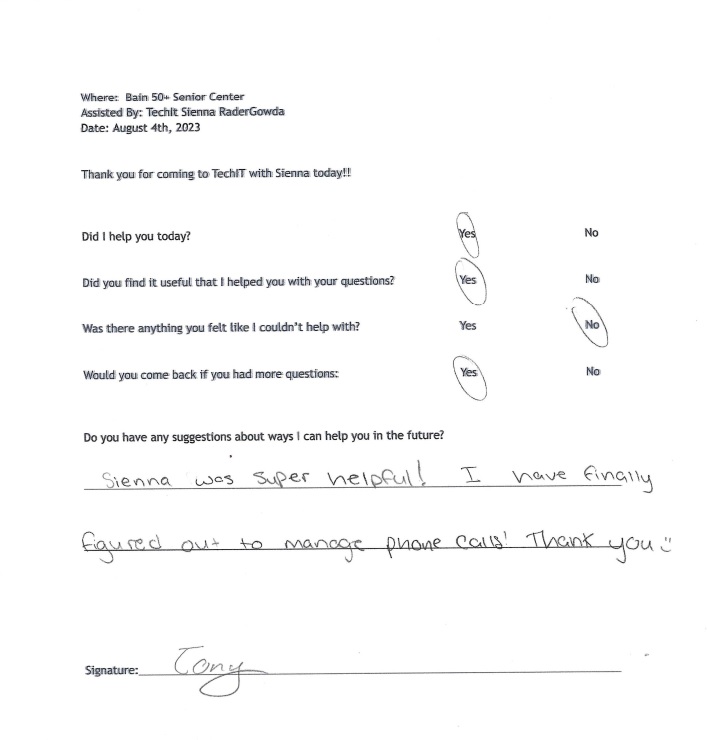 Where: Bain 50+ Senior Center
Assisted By: TechIt Sienna RaderGowda
Date: August 4th, 2023
Thank you for coming to TechIT with Sienna today!!!
Did I help you today? Yes No
Did you find it useful that I helped you with your questions? Yes No
Was there anything you felt like I couldn't help with? Yes No
Would you come back if you had more questions: Yes No
Do you have any suggestions about ways I can help you in the future?
Sienna was super helpful! I have finally
figured out to manage phone calls! Thank you :)
Signature: Tony